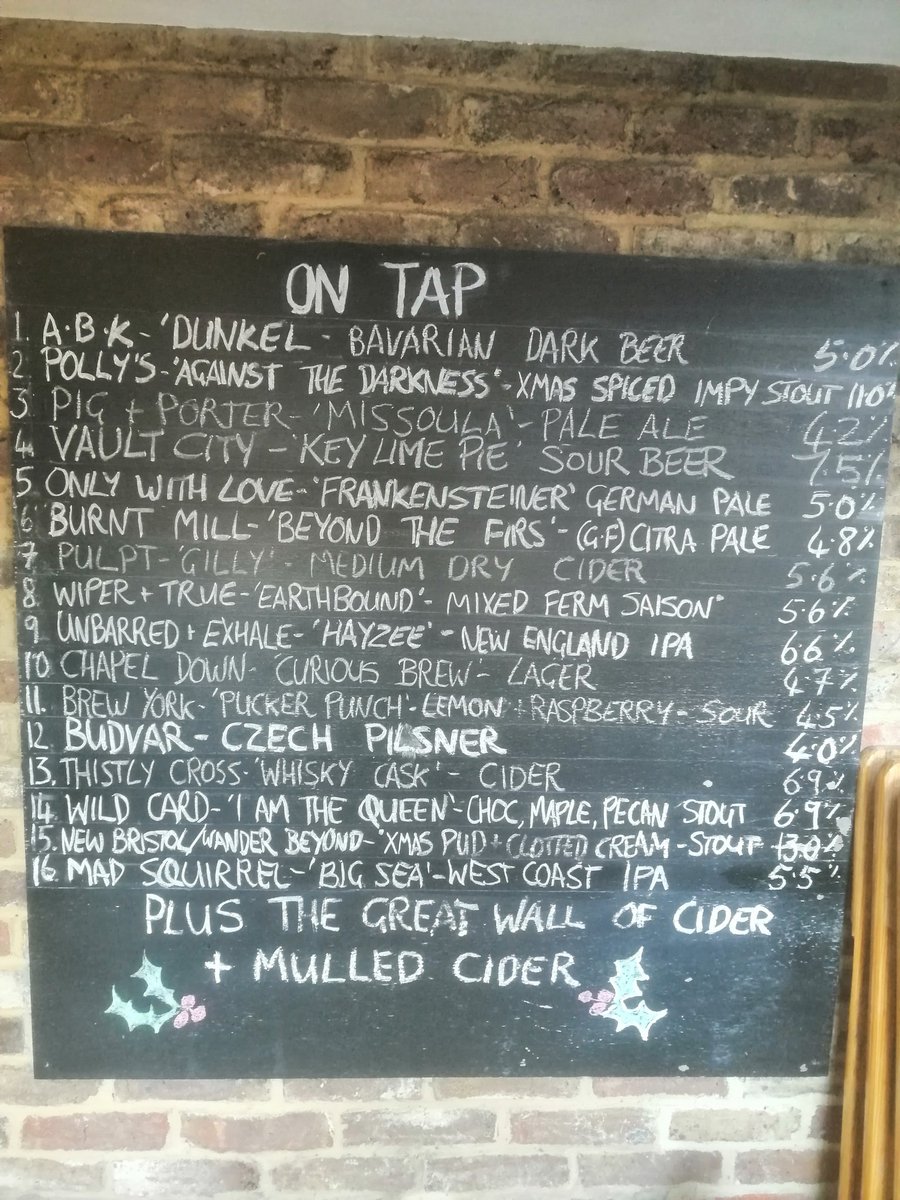 ON TAP
1. A.B.K - 'DUNKEL - BAVARIAN DARK BEER 5.0%
2. POLLY'S - 'AGAINST THE DARKNESS' - XMAS SPICED IMPY STOUT 11.0%
3 PIG + PORTER - 'MISSOULA' - PALE ALE 4.2%
4. VAULT CITY - 'KEY LIME PIE' SOUR BEER 7.5%
5 ONLY WITH LOVE - 'FRANKENSTEINER' GERMAN PALE 5.0%
6 BURNT MILL - 'BEYOND THE FIRS' - (G.F) CITRA PALE 4.8%
7 PULPT - 'GILLY' - MEDIUM DRY CIDER 5.6%
8 WIPER + TRUE - 'EARTHBOUND' - MIXED FERM SAISON" 5.6%
9 UNBARRED + EXHALE - 'HAYZEE' - NEW ENGLAND IPA 6.6%
10 CHAPEL DOWN - 'CURIOUS BREW' - LAGER 4.7%
11. BREW YORK - 'PUCKER PUNCH' - LEMON + RASPBERRY - SOUR 4.5%
12 BUDVAR - CZECH PILSNER 4.0%
13. THISTLY CROSS - 'WHISKY CASK' - CIDER 6.9%
14. WILD CARD - 'I AM THE QUEEN' - CHOC, MAPLE, PECAN STOUT 6.9%
15. NEW BRISTOL/WANDER BEYOND - 'XMAS PUD + CLOTTED CREAM - STOUT 13.0%
16. MAD SQUIRREL - 'BIG SEA' - WEST COAST IPA 5.5%
PLUS THE GREAT WALL OF CIDER
+ MULLED CIDER